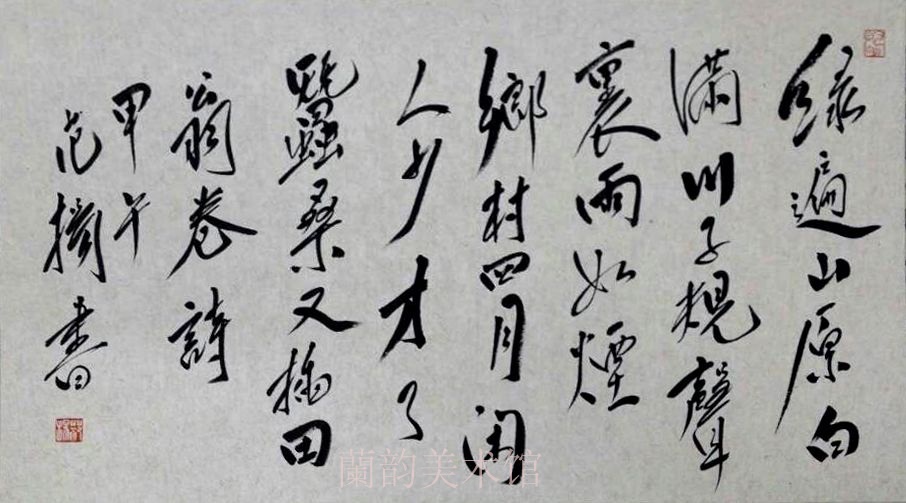 绿遍山原白
满川子规聲
裏雨如煙
鄉村四月闲
人少才了
蠶桑又插田
翁卷詩
甲午
范擣書
蘭韵美术馆